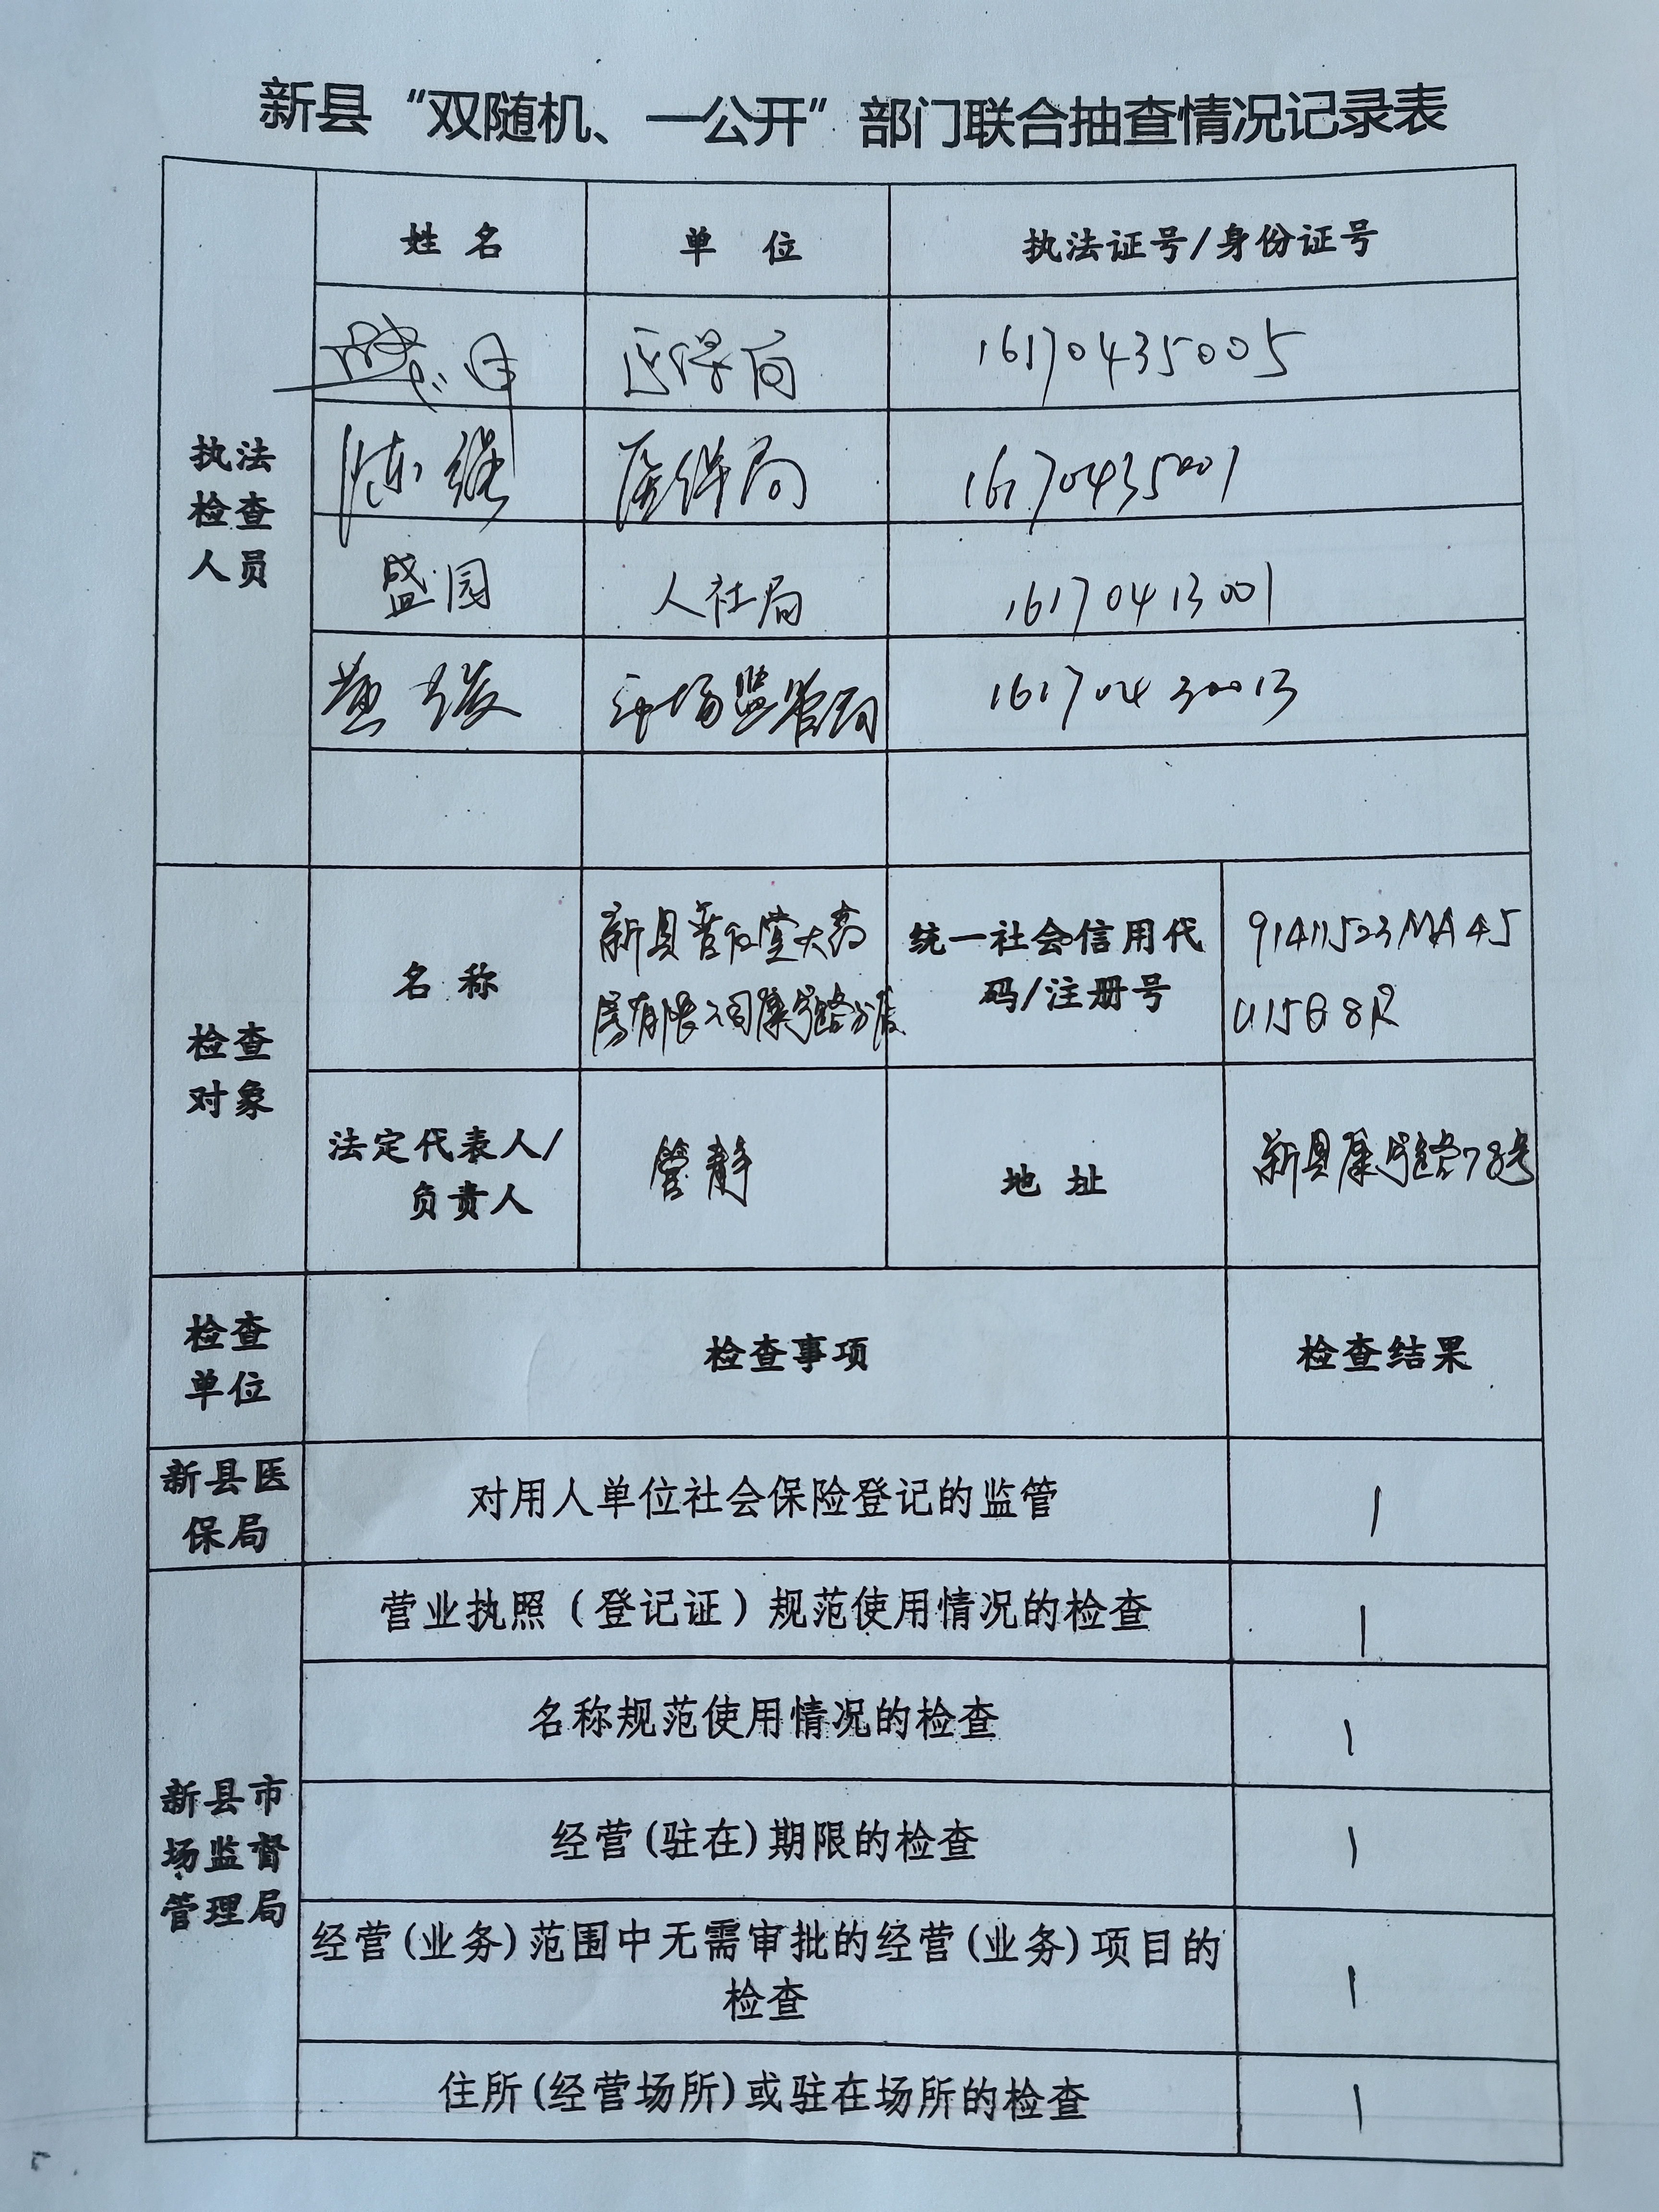 新县“双随机、一公开”部门联合抽查情况记录表
姓名 单位 执法证号/身份证号
执法
检查
人员
医保局 16170435005
陈 医保局 16170435001
盛园 人社局 16170413001
黄 市场监管局 16170430013
检查
对象
名称
新县普仁堂大药
房有限公司康宁路分店
统一社会信用代
码/注册号
91411523MA45
U15G8R
法定代表人/
负责人
管静
地址
新县康宁路78号
检查
单位
检查事项 检查结果
新县医
保局
对用人单位社会保险登记的监管 1
新县市
场监督
管理局
营业执照（登记证）规范使用情况的检查 1
名称规范使用情况的检查 1
经营(驻在)期限的检查 1
经营(业务)范围中无需审批的经营(业务)项目的
检查 1
住所(经营场所)或驻在场所的检查 1